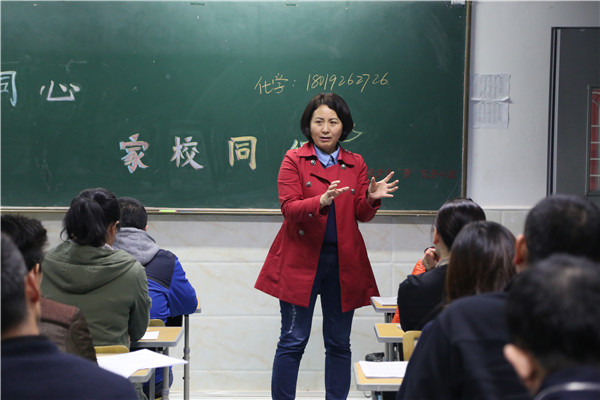 同心
化学：18019262726
家校同